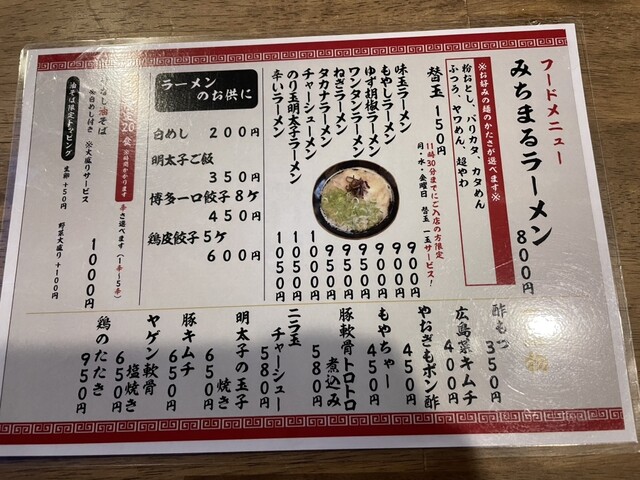 フードメニュー
みちまるラーメン 800円
※お好みの麺のかたさが選べます※
粉おとし、バリカタ、カタめん
ふつう、ヤワめん、超やわ
替玉 150円
11時30分までにご入店の方限定
月・水・金曜日 替玉一玉サービス！
味玉ラーメン 900円
もやしラーメン 900円
ゆず胡椒ラーメン 900円
ワンタンラーメン 950円
ねぎラーメン 950円
タカナラーメン 950円
チャーシューメン 1000円
のり玉明太子ラーメン 1050円
辛いラーメン 1050円
ラーメン
のお供に
白めし 200円
明太子ご飯
350円
博多一口餃子8ケ
450円
鶏皮餃子5ケ
600円
20食
辛さ選べます（1辛〜5辛）
なし油そば 1000円
※白めし付き ※大盛りサービス
油そば限定トッピング
生卵+50円 野菜大盛り+100円
酢もつ 350円
広島菜キムチ 400円
やおぎもポン酢 450円
もやちゃー 450円
豚軟骨トロトロ
煮込み 580円
ニラ玉
チャーシュー 580円
明太子の玉子
焼き 650円
豚キムチ 650円
ヤゲン軟骨
塩焼き 650円
鶏のたたき 950円